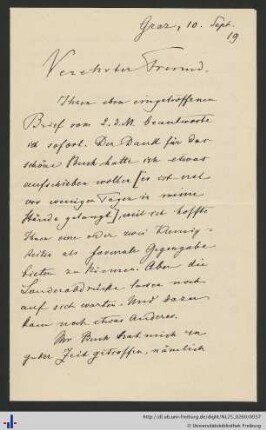 Graz, 10. Sept.
19
Verehrter Freund.
Ihren eben eingetroffenen
Brief vom 2. d. M. beantworte
ich sofort. Der Dank für das
schöne Buch hatte ich etwas
aufschieben wollen [es ist erst
vor wenigen Tagen in meine
Hände gelangt], weil ich hoffte
Ihnen eine oder zwei Kleinig-
keiten als formale Gegengabe
bieten zu können. Aber die
Sonderabdrücke lassen noch
auf sich warten. Und dazu
kam noch etwas Anderes.
Ihr Buch hat mich in
guter Zeit getroffen, nämlich
http://dl.ub.uni-freiburg.de/diglit/
© Universitätsbibliothek Freiburg